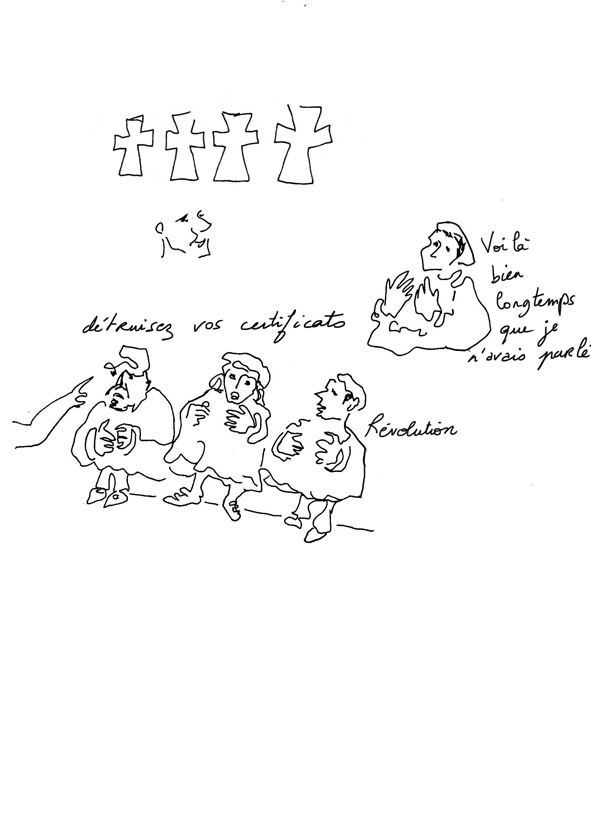 Voilà
bien
longtemps
que je
n'avais parlé
détruisez vos certificats
Révolution